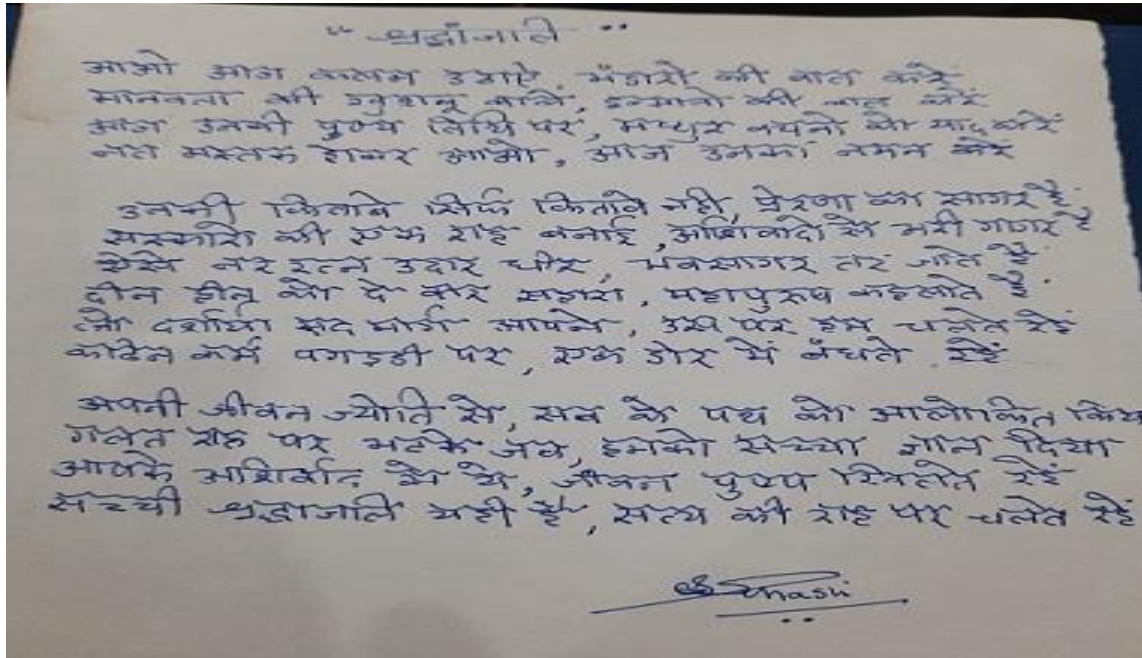 " श्रद्धाँजाले "
आओ आज कलम उठाऐ, भँडारी की बात करें
मानवता की खुशबू वाले, इन्सानो की बात करें
आज उनकी पुण्य तिथि पर, मधुर वचनो को याद करें
नत मस्तक होकर आओ, आज उनका नमन करें
उनकी किताबे सिर्फ किताबे नही, प्रेरणा का सागर है
सस्कारो की एक राह बनाई, आर्शिवादो से भरी गागर है
ऐसे नर रत्न उदार धीर, भवसागर तर जाते है
दीन हीन को दे कर सहारा, महापुरुष कहलाते है
जो दर्शाया सद मार्ग आपने, उस पर हम चलते रहें
कठिन कर्म पगडडी पर, एक डोर में बँधते रहें
अपनी जीवन ज्योति से, सब के पथ को आलोकित किय
गलत राह पर भटके जब, हमको सच्चा ज्ञान दिया
आपके आशिर्वाद से ये, जीवन पुष्प खिलते रहें
सच्ची श्रद्धाजलि यही है, सत्य की राह पर चलते रहें